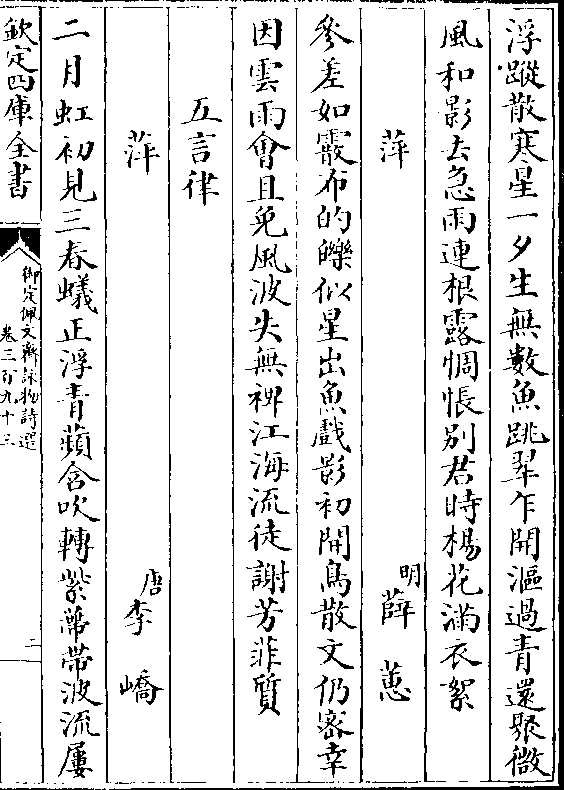 浮蹤散寒星一夕生無數魚跳翠乍開漚過青還聚微
風和影去急雨連根露惆悵別君時楊花滿衣絮
萍　明薛蕙
參差如霰布的皪似星出魚戲影初開鳥散文仍密幸
因雲雨會且免風波失無裨江海流徒謝芳菲質
五言律
萍　唐李嶠
二月虹初見三春蟻正浮青蘋含吹轉紫蔕帶波流屢
欽定四庫全書
御定佩文齋詠物詩選
卷三百九十三
二